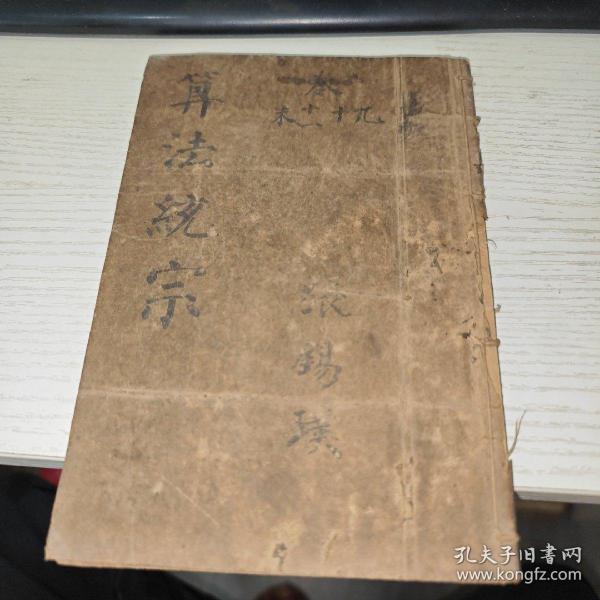 算法統宗
卷
九十十一
末
張錫
孔夫子旧書网
www.kongfz.com